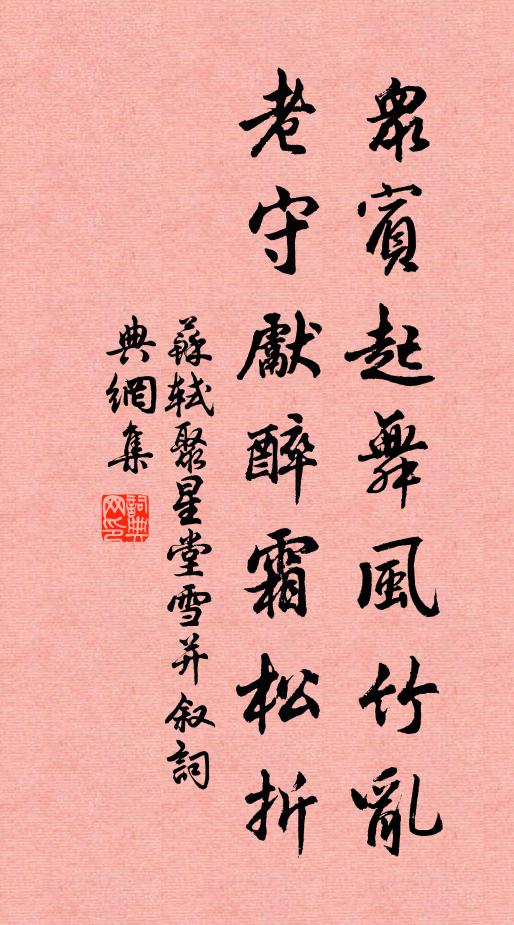 眾賓起舞風竹亂
老守獻醉霜松折
蘇軾聚星堂雪并叙詞
典網集
詞典網印